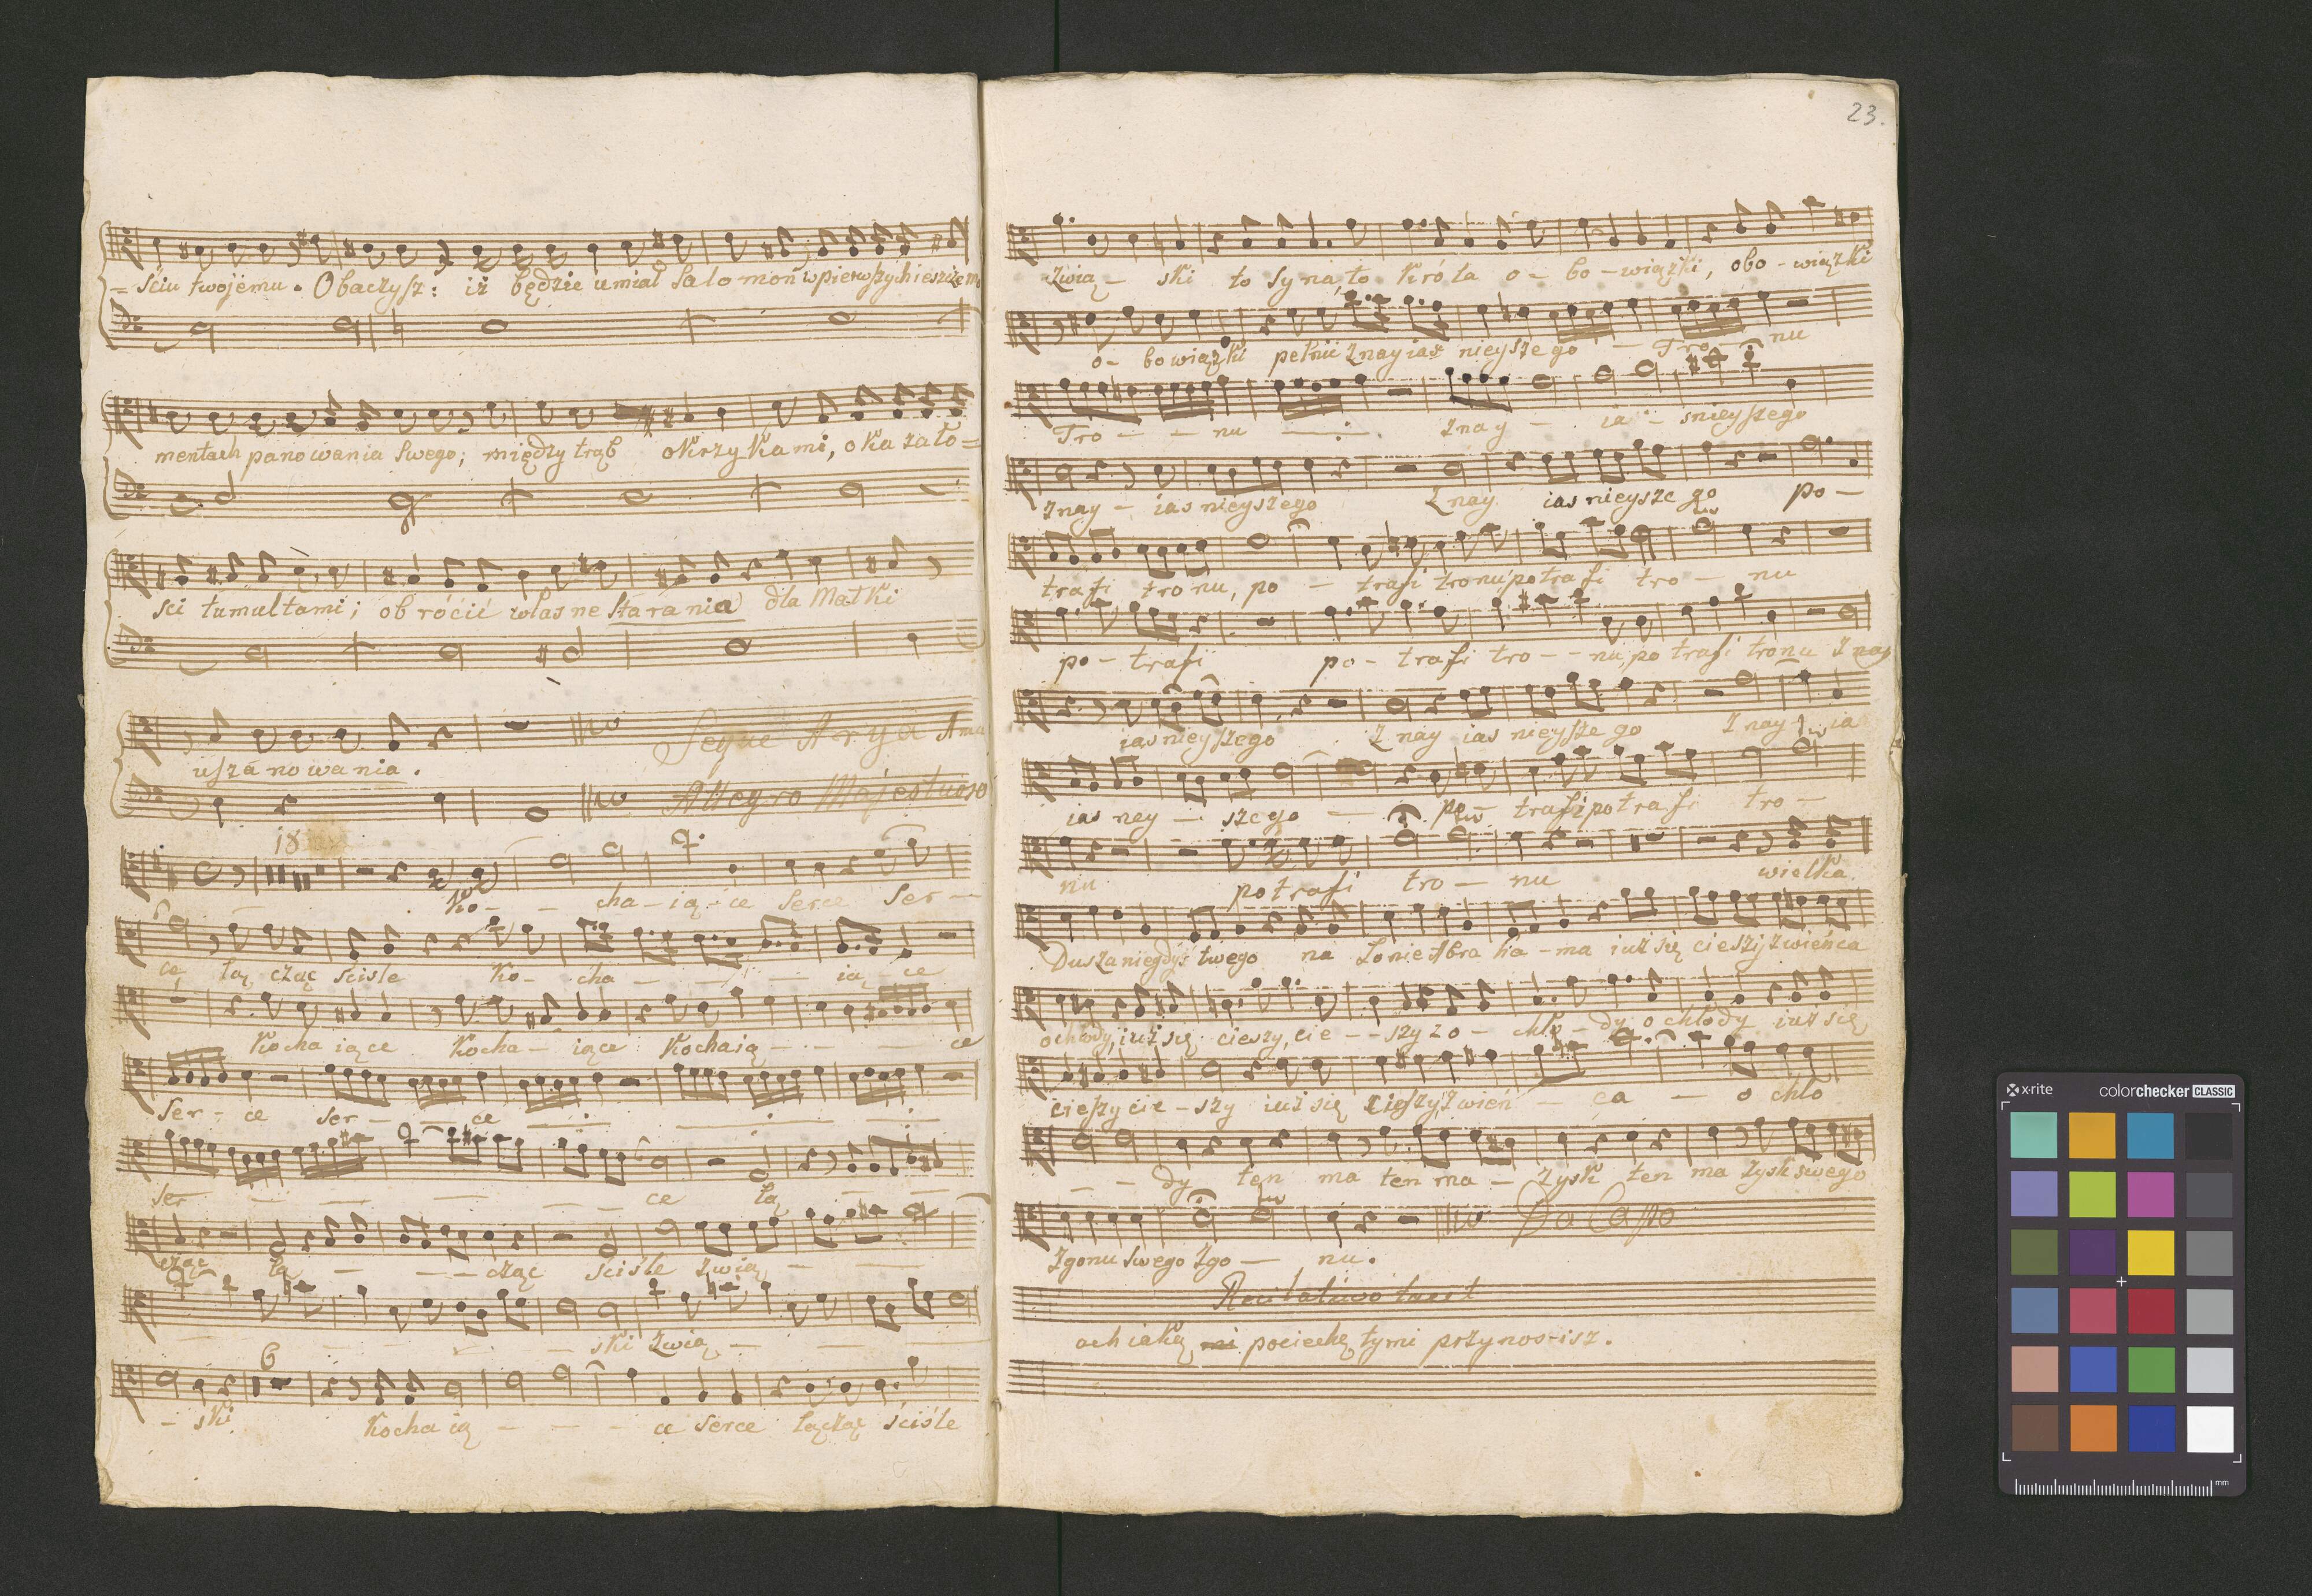 = ściu twojemu. Obaczysz: iż będzie umiał Salomon w pierwszych ieszcze mo
mentach panowania Swego; między trąb okrzykami, okazało=
sci tumultami; obrócić własne starania dla Matki
uszanowania.
Segue Arya Ama
Allegro Majestuoso
18
Ko - - cha - ią - ce serce Ser -
ce łą cząc ściśle Ko - cha - - - - ią - ce
Kocha iące Kocha - iące Kochaią - - - - ce
Ser - ce ser - - ce
ser - - - - - ce łą - -
cząc łą - - - cząc sciśle zwią - - -
- - - - - ski zwią - - -
6
- ski. Kocha ią - - - ce serce łącząc ściśle
23.
zwią - ski to Syna, to Króla o - bo - wiązki, obo - wiązki
o - bowiązki pełnić znayias nieyszego - Tro - nu
Tro - - nu - znay - ia - snieyszego
znay - iasnieyszego Znay iasnieyszego po -
trafi tronu, po - trafi tronu potrafi tro - nu
po - trafi po - trafi tro - - nu, potrafi tronu Znay
iasnieyszego Znay iasnieyszego Znay - ia
ias ney - szego - po - trafi potrafi tro -
nu potrafi tro - nu wielka
Dusza niegdyś twego na Łonie Abra ha - ma iuż się cieszy z wieńca
ochłody, iuż się cieszy, cie - - szy z o - chło - dy ochłody iuż się
cieszy cie - szy iuż się cieszy z wień - ca - o chło
- - dy ten ma ten ma - zysk ten ma zysk swego
Zgonu swego Zgo - nu.
Da Capo
Recitativo tacet
ach iaką pociechę tymi przynos-isz.